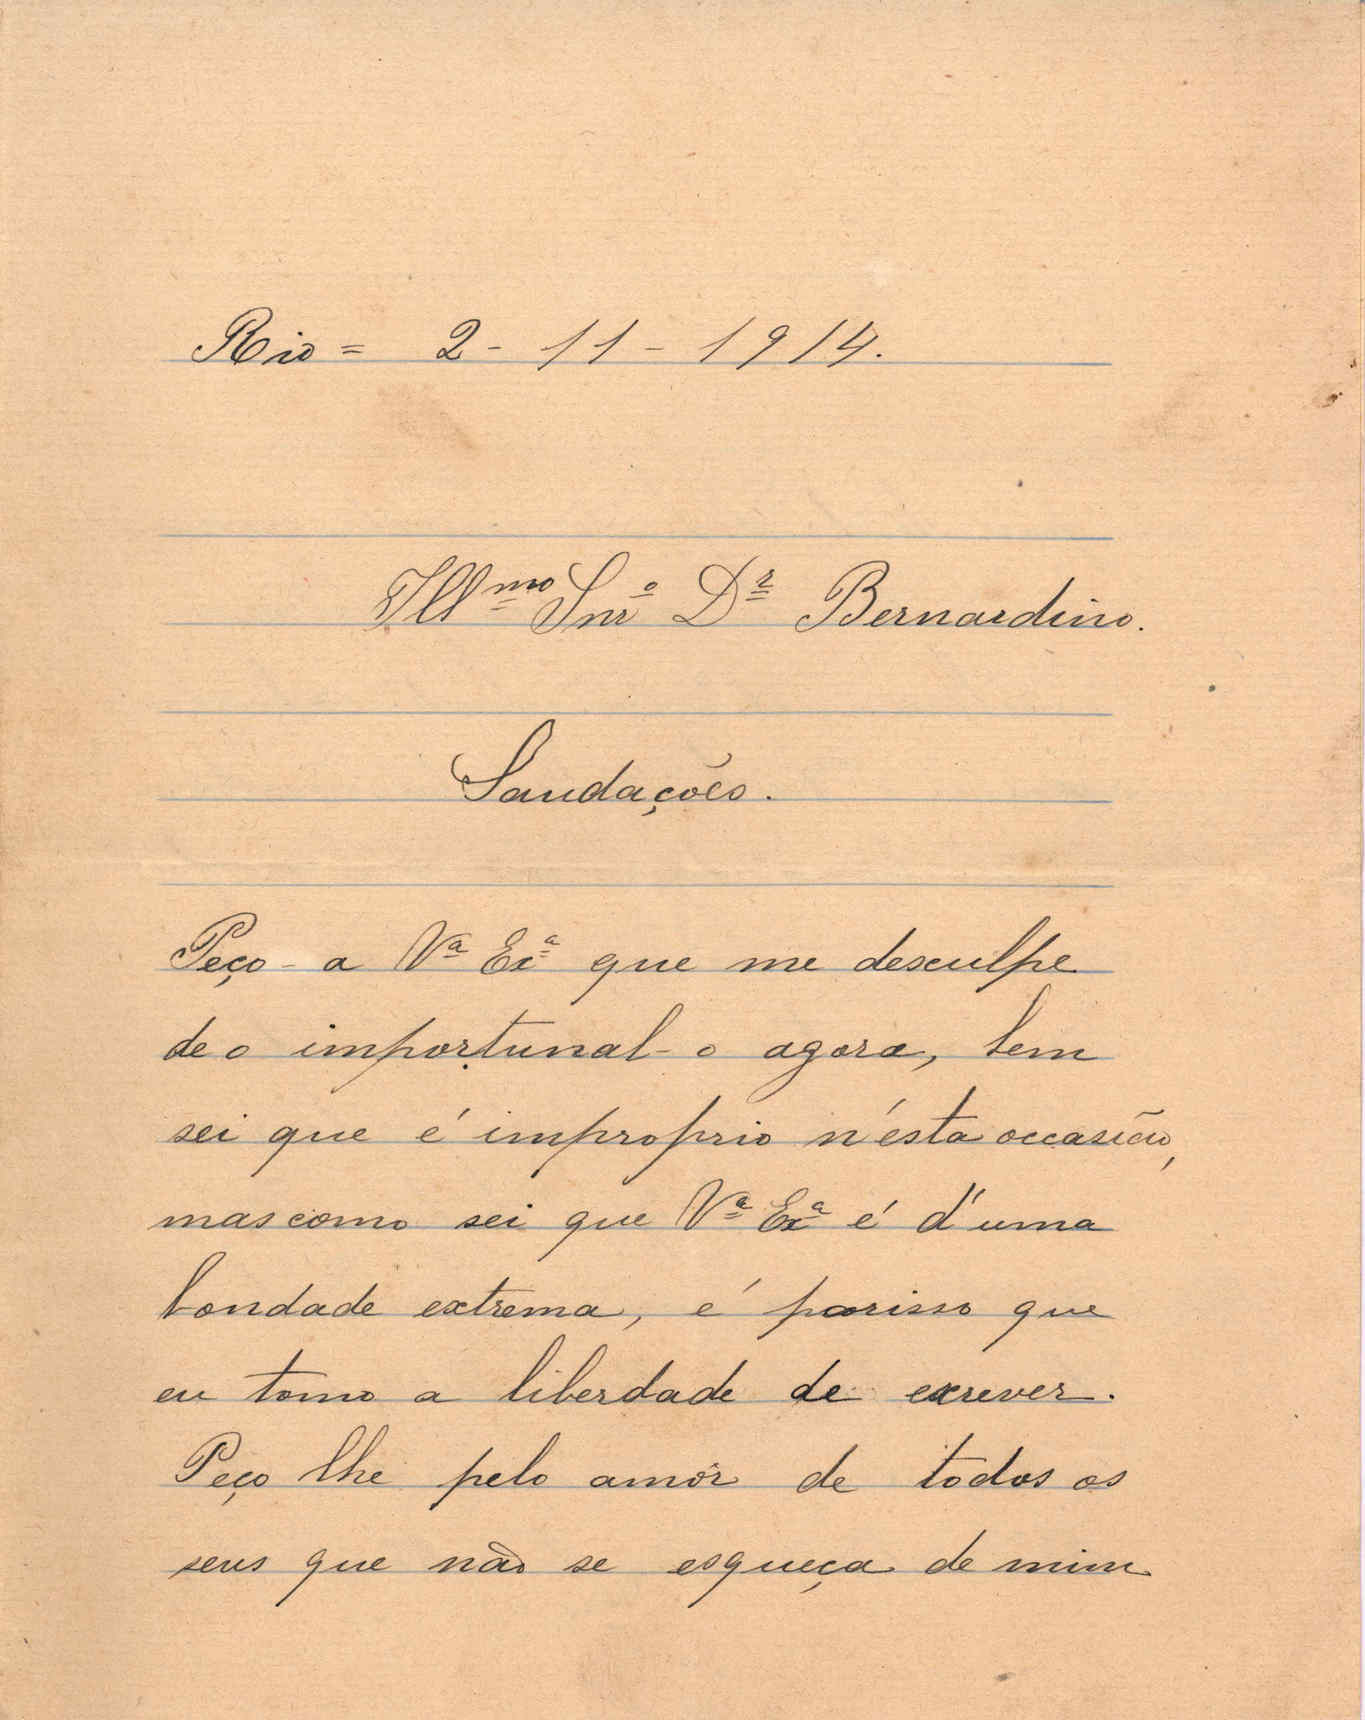 Rio = 2 - 11 - 1914.
Illmo Snro Dr Bernardino.
Saudações.
Peço - a Va Exa que me desculpe
de o importunal-o agora, bem
sei que é improprio n'ésta occasião,
mas como sei que Va Exa é d'uma
bondade extrema, é porisso que
eu tomo a liberdade de escrever.
Peço lhe pelo amôr de todos os
seus que não se esqueça de mim